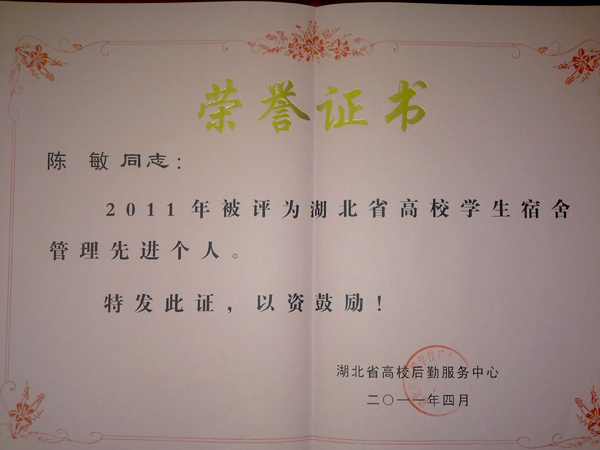 荣誉证书
陈 敏同志：
2011年被评为湖北省高校学生宿舍
管理先进个人。
特发此证，以资鼓励！
湖北省高校后勤服务中心
二〇一一年四月